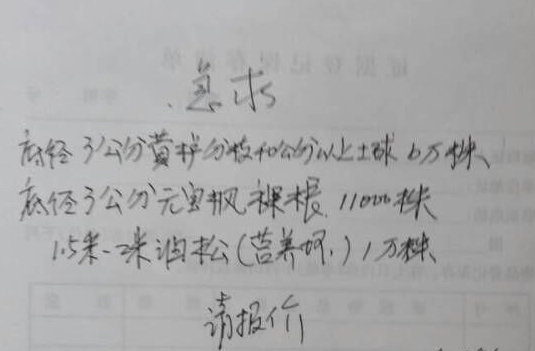 急求
底径3公分黄栌分枝40公分以上土球6万株、
底径3公分元宝枫裸根11000株
1.5米-2米油松(营养杯)1万株、
请报价